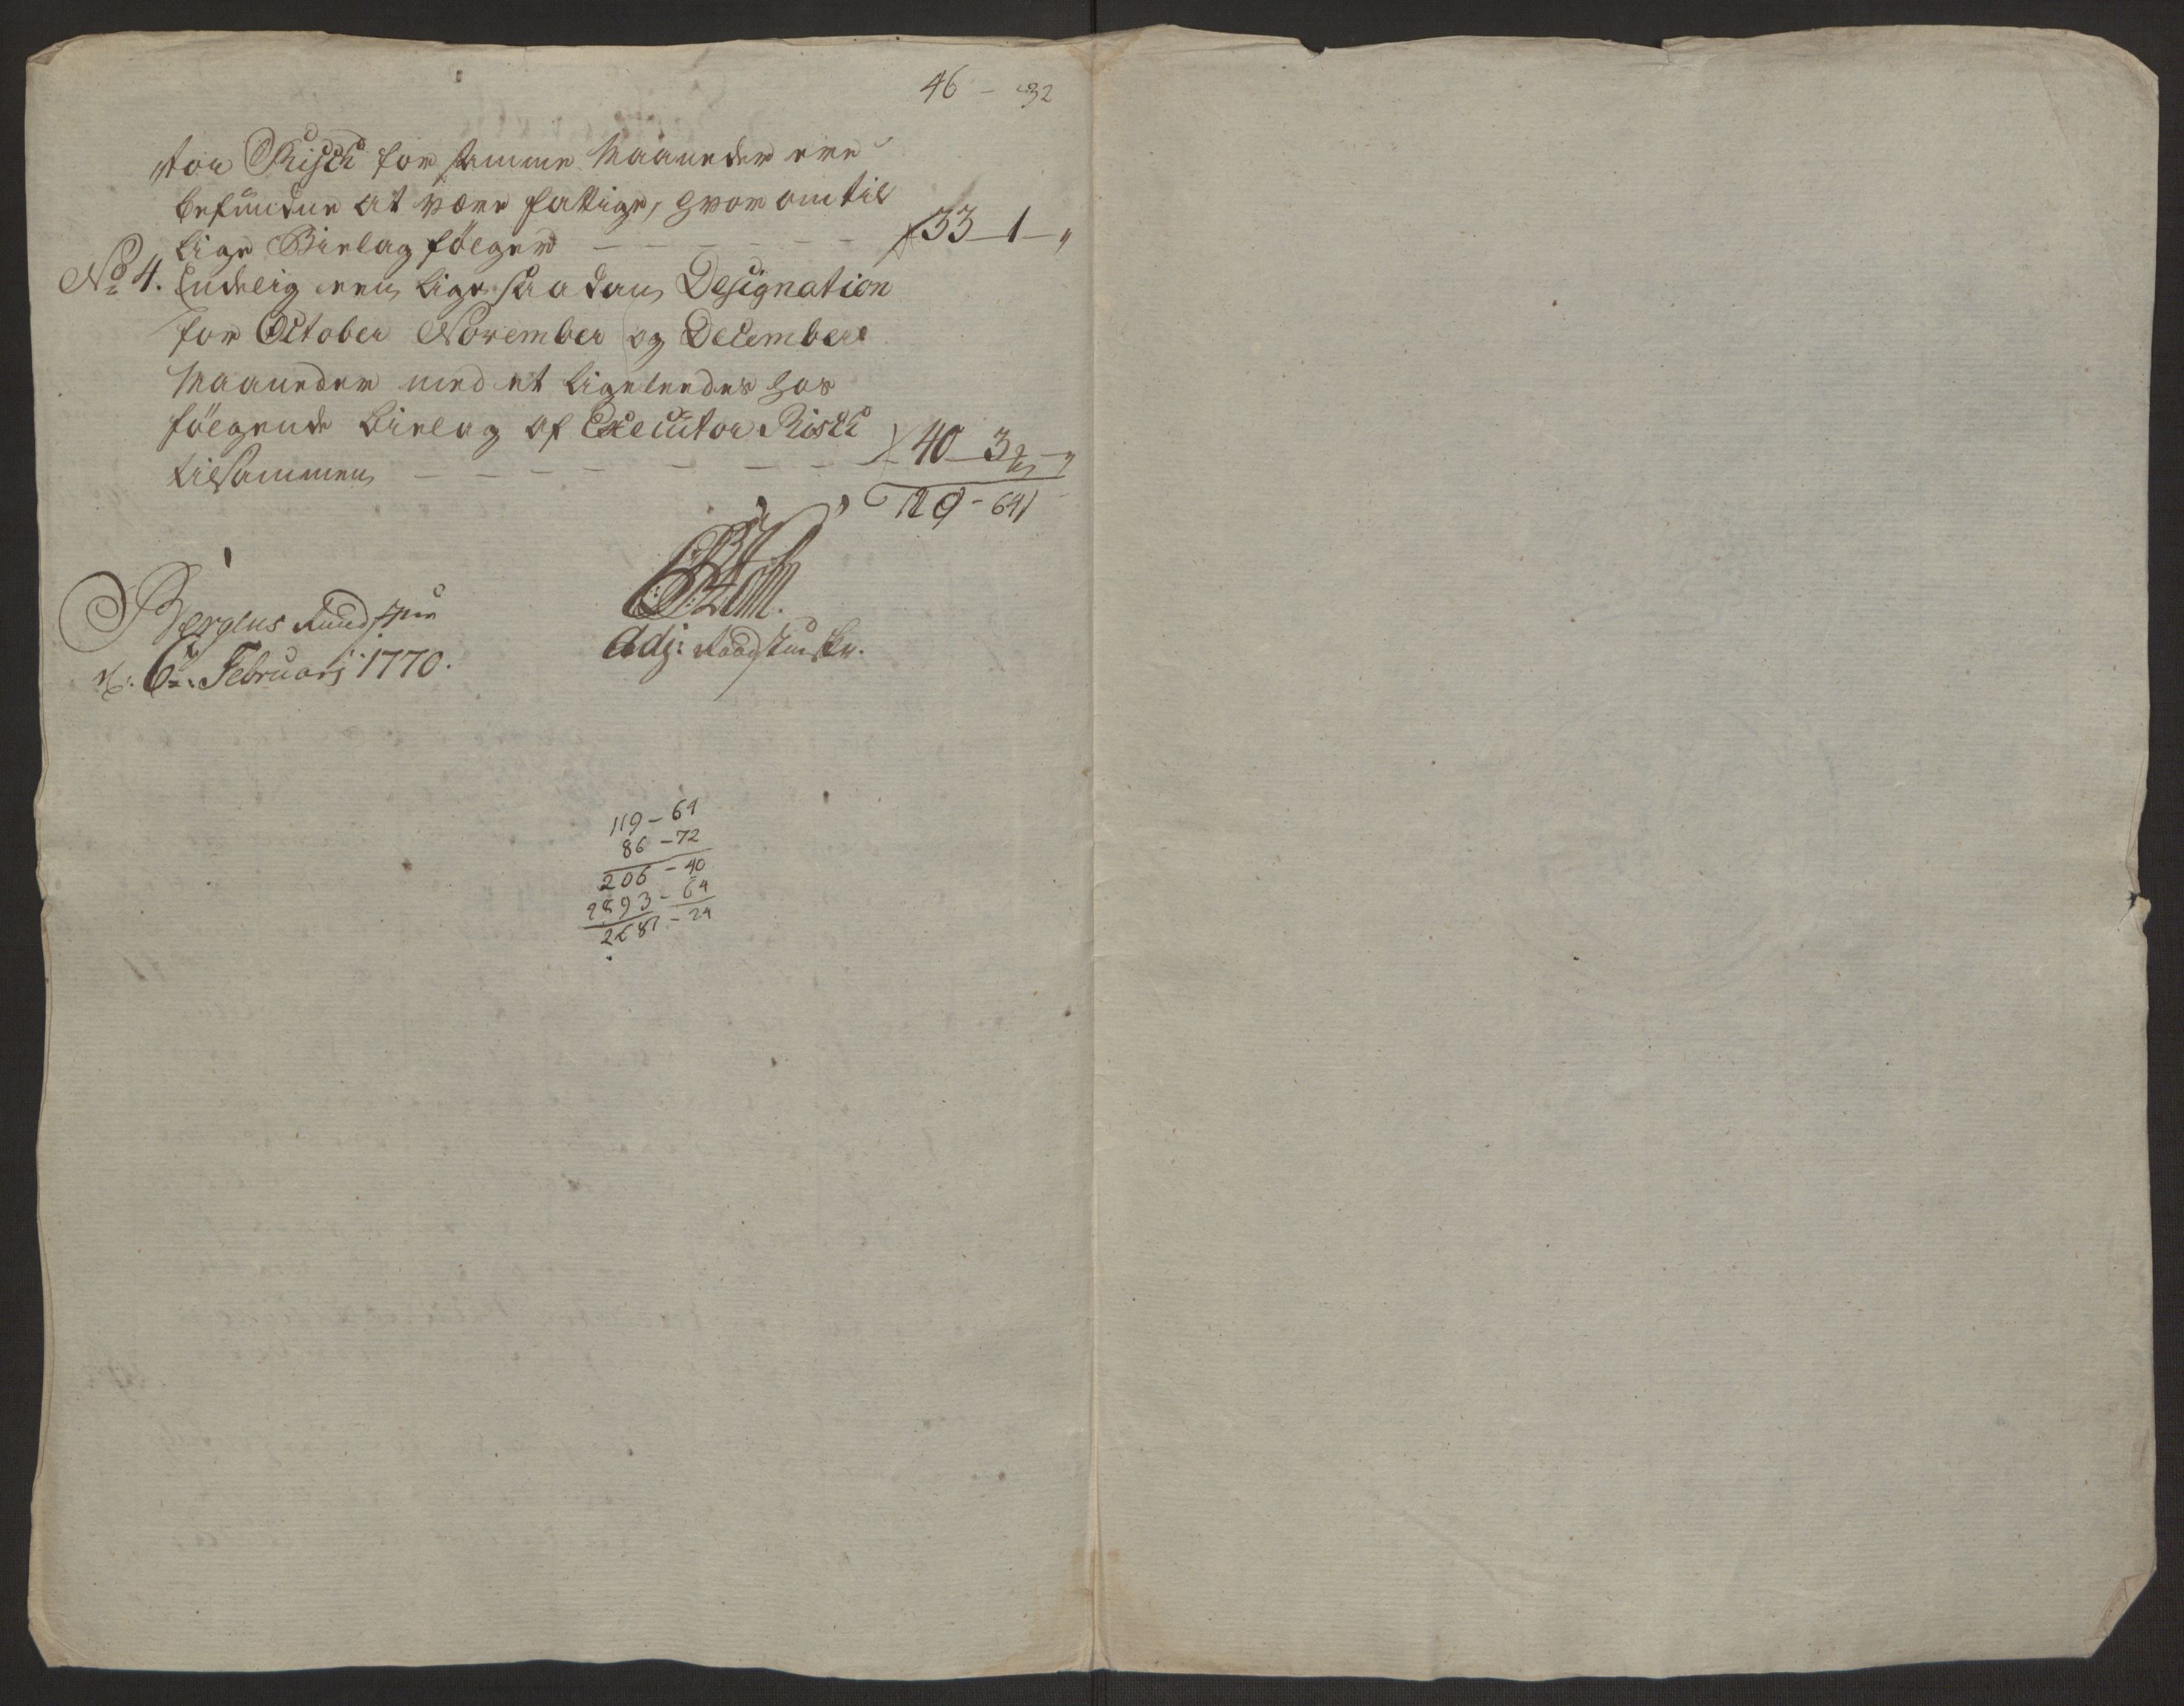 46 - 32
tor Risch for samme Maaneder ere
befundne at være fattige, hvor om til
lige Bielag følger - - - - - - 33 - 1 - "
No 4. Endelig een lige saadan Designation
for October November og December
Maaneder med et ligeleedes hos
følgende bielag af Executor Risch
tilsammen - - - - - - - 40 - 3 -
119 - 64
Bergens Raadstue
d: 6te: Februarj 1770.
Adj: Raadstueskr.
119 - 64
86 - 72
206 - 40
2893 - 64
2687 - 24